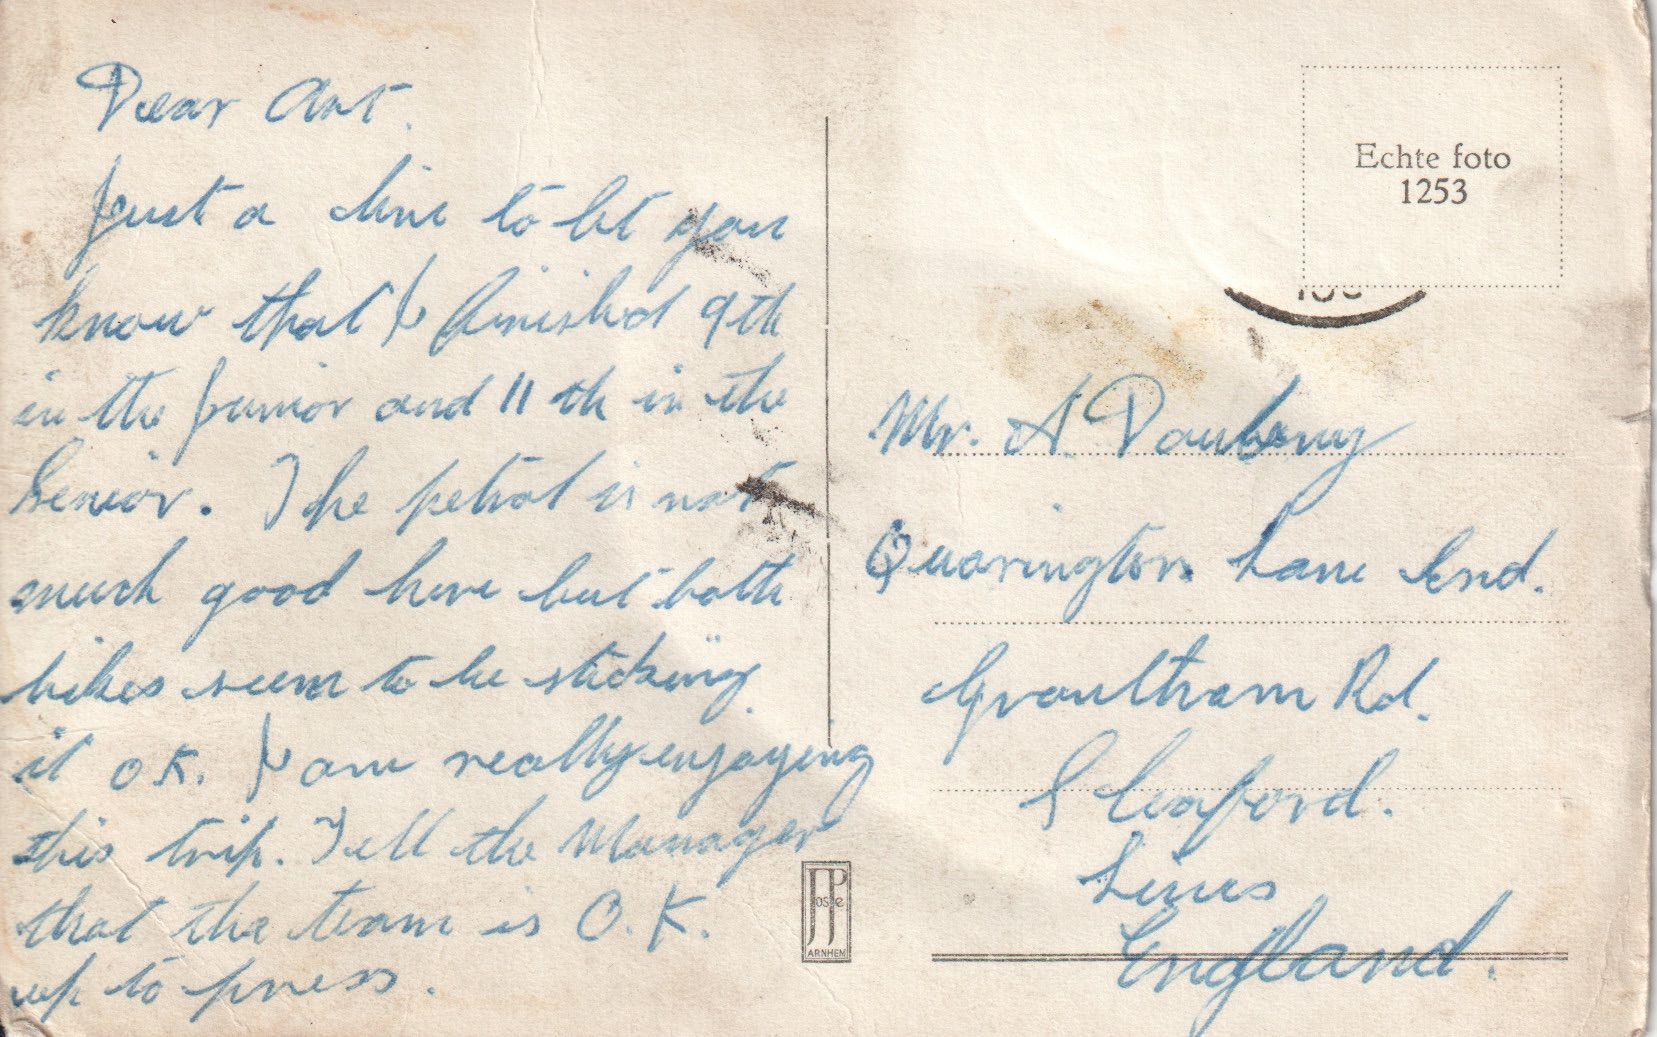 Dear Art.
Just a line to let you
know that I finished 9th
in the Junior and 11th in the
Senior. The petrol is not
much good here but both
bikes seem to be sticking
it O.K. I am really enjoying
this trip. Tell the Manager
that the team is O.K.
up to press.
Echte foto
1253
Mr. A Daubeny
Quarrington Lane End.
Grantham Rd.
Sleaford.
Lincs
England.
JosPé
ARNHEM